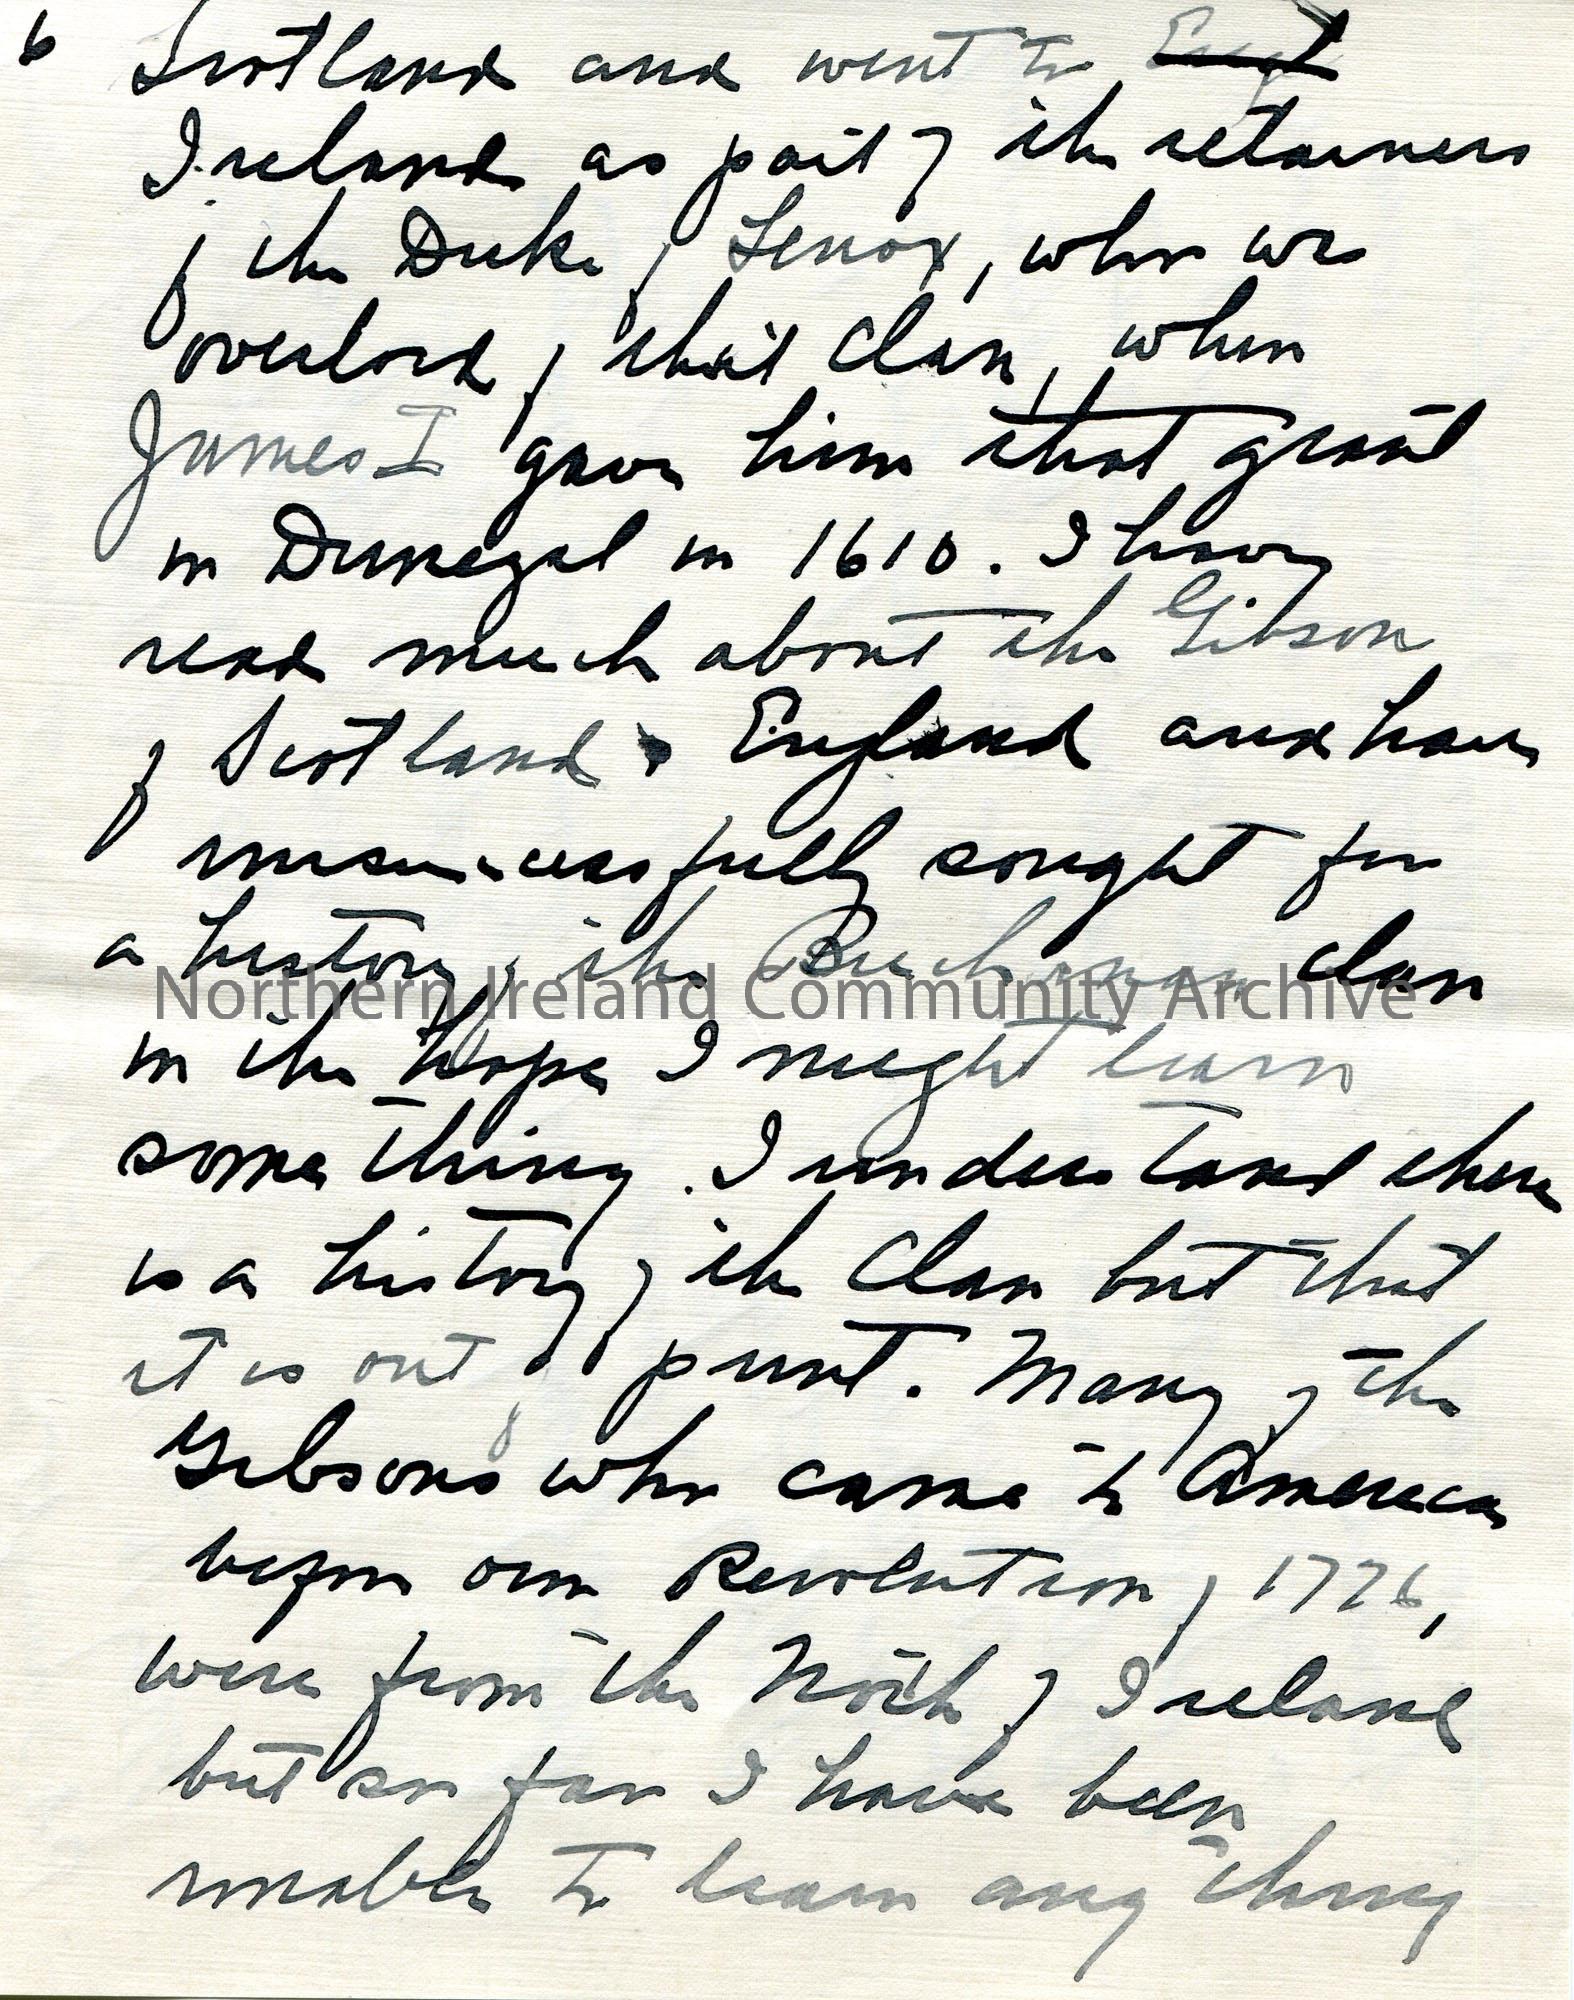 6
Scotland and went to
Ireland as part of the retainers
of the Duke of Lenox, who was
overlord of that Clan, when
James I gave him that grant
in Dunegal in 1610. I have
read much about the Gibson
of Scotland & England and have
unsuccessfully sought for
a history of the Buchanan clan
Northern Ireland Community Archive
in the hope I might learn
something. I understand there
is a history of the Clan but that
it is out of print. Many of the
Gibsons who came to America
before our Revolution of 1776,
were from the North of Ireland
but so far I have been
unable to learn anything